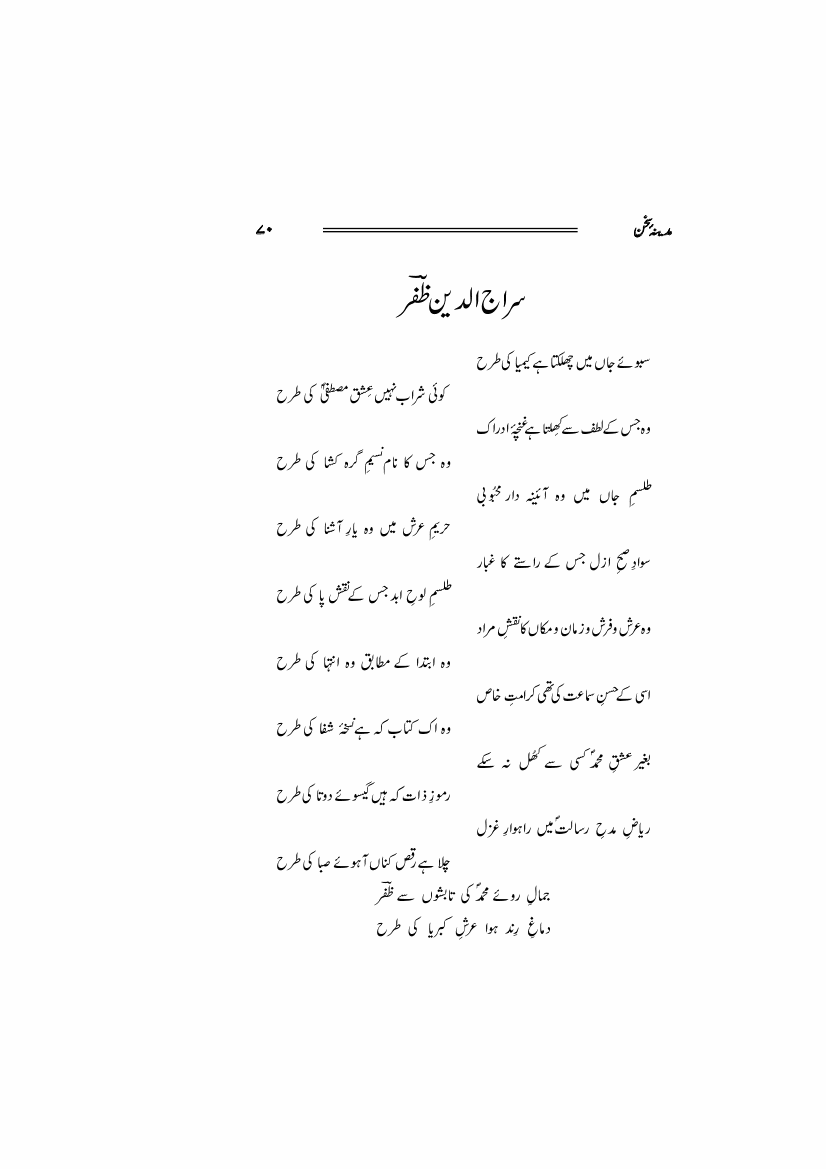 مدینۂ سخن ۷۰
سراج الدین ظفرؔ
سبوئے جاں میں چھلکتا ہے کیمیا کی طرح
کوئی شراب نہیں عِشق مصطفیٰؐ کی طرح
وہ جس کے لطف سے کھِلتا ہے غنچۂ ادراک
وہ جس کا نام نسیمِ گرہ کشا کی طرح
طلسمِ جاں میں وہ آئینہ دار محبُوبی
حریمِ عرش میں وہ یارِ آشنا کی طرح
سوادِ صبحِ ازل جس کے راستے کا غبار
طلسمِ لوحِ ابد جس کے نقش پا کی طرح
وہ عرش و فرش و زمان و مکاں کا نقشِ مراد
وہ ابتدا کے مطابق وہ انتہا کی طرح
اسی کے حسنِ سماعت کی تھی کرامتِ خاص
وہ اک کتاب کہ ہے نسخۂ شفا کی طرح
بغیر عشقِ محمدؐ کسی سے کھُل نہ سکے
رموزِ ذات کہ ہیں گیسوئے دوتا کی طرح
ریاضِ مدحِ رسالتؐ میں راہوارِ غزل
چلا ہے رقص کناں آہوئے صبا کی طرح
جمالِ روئے محمدؐ کی تابشوں سے ظفرؔ
دماغِ رِند ہوا عرشِ کبریا کی طرح